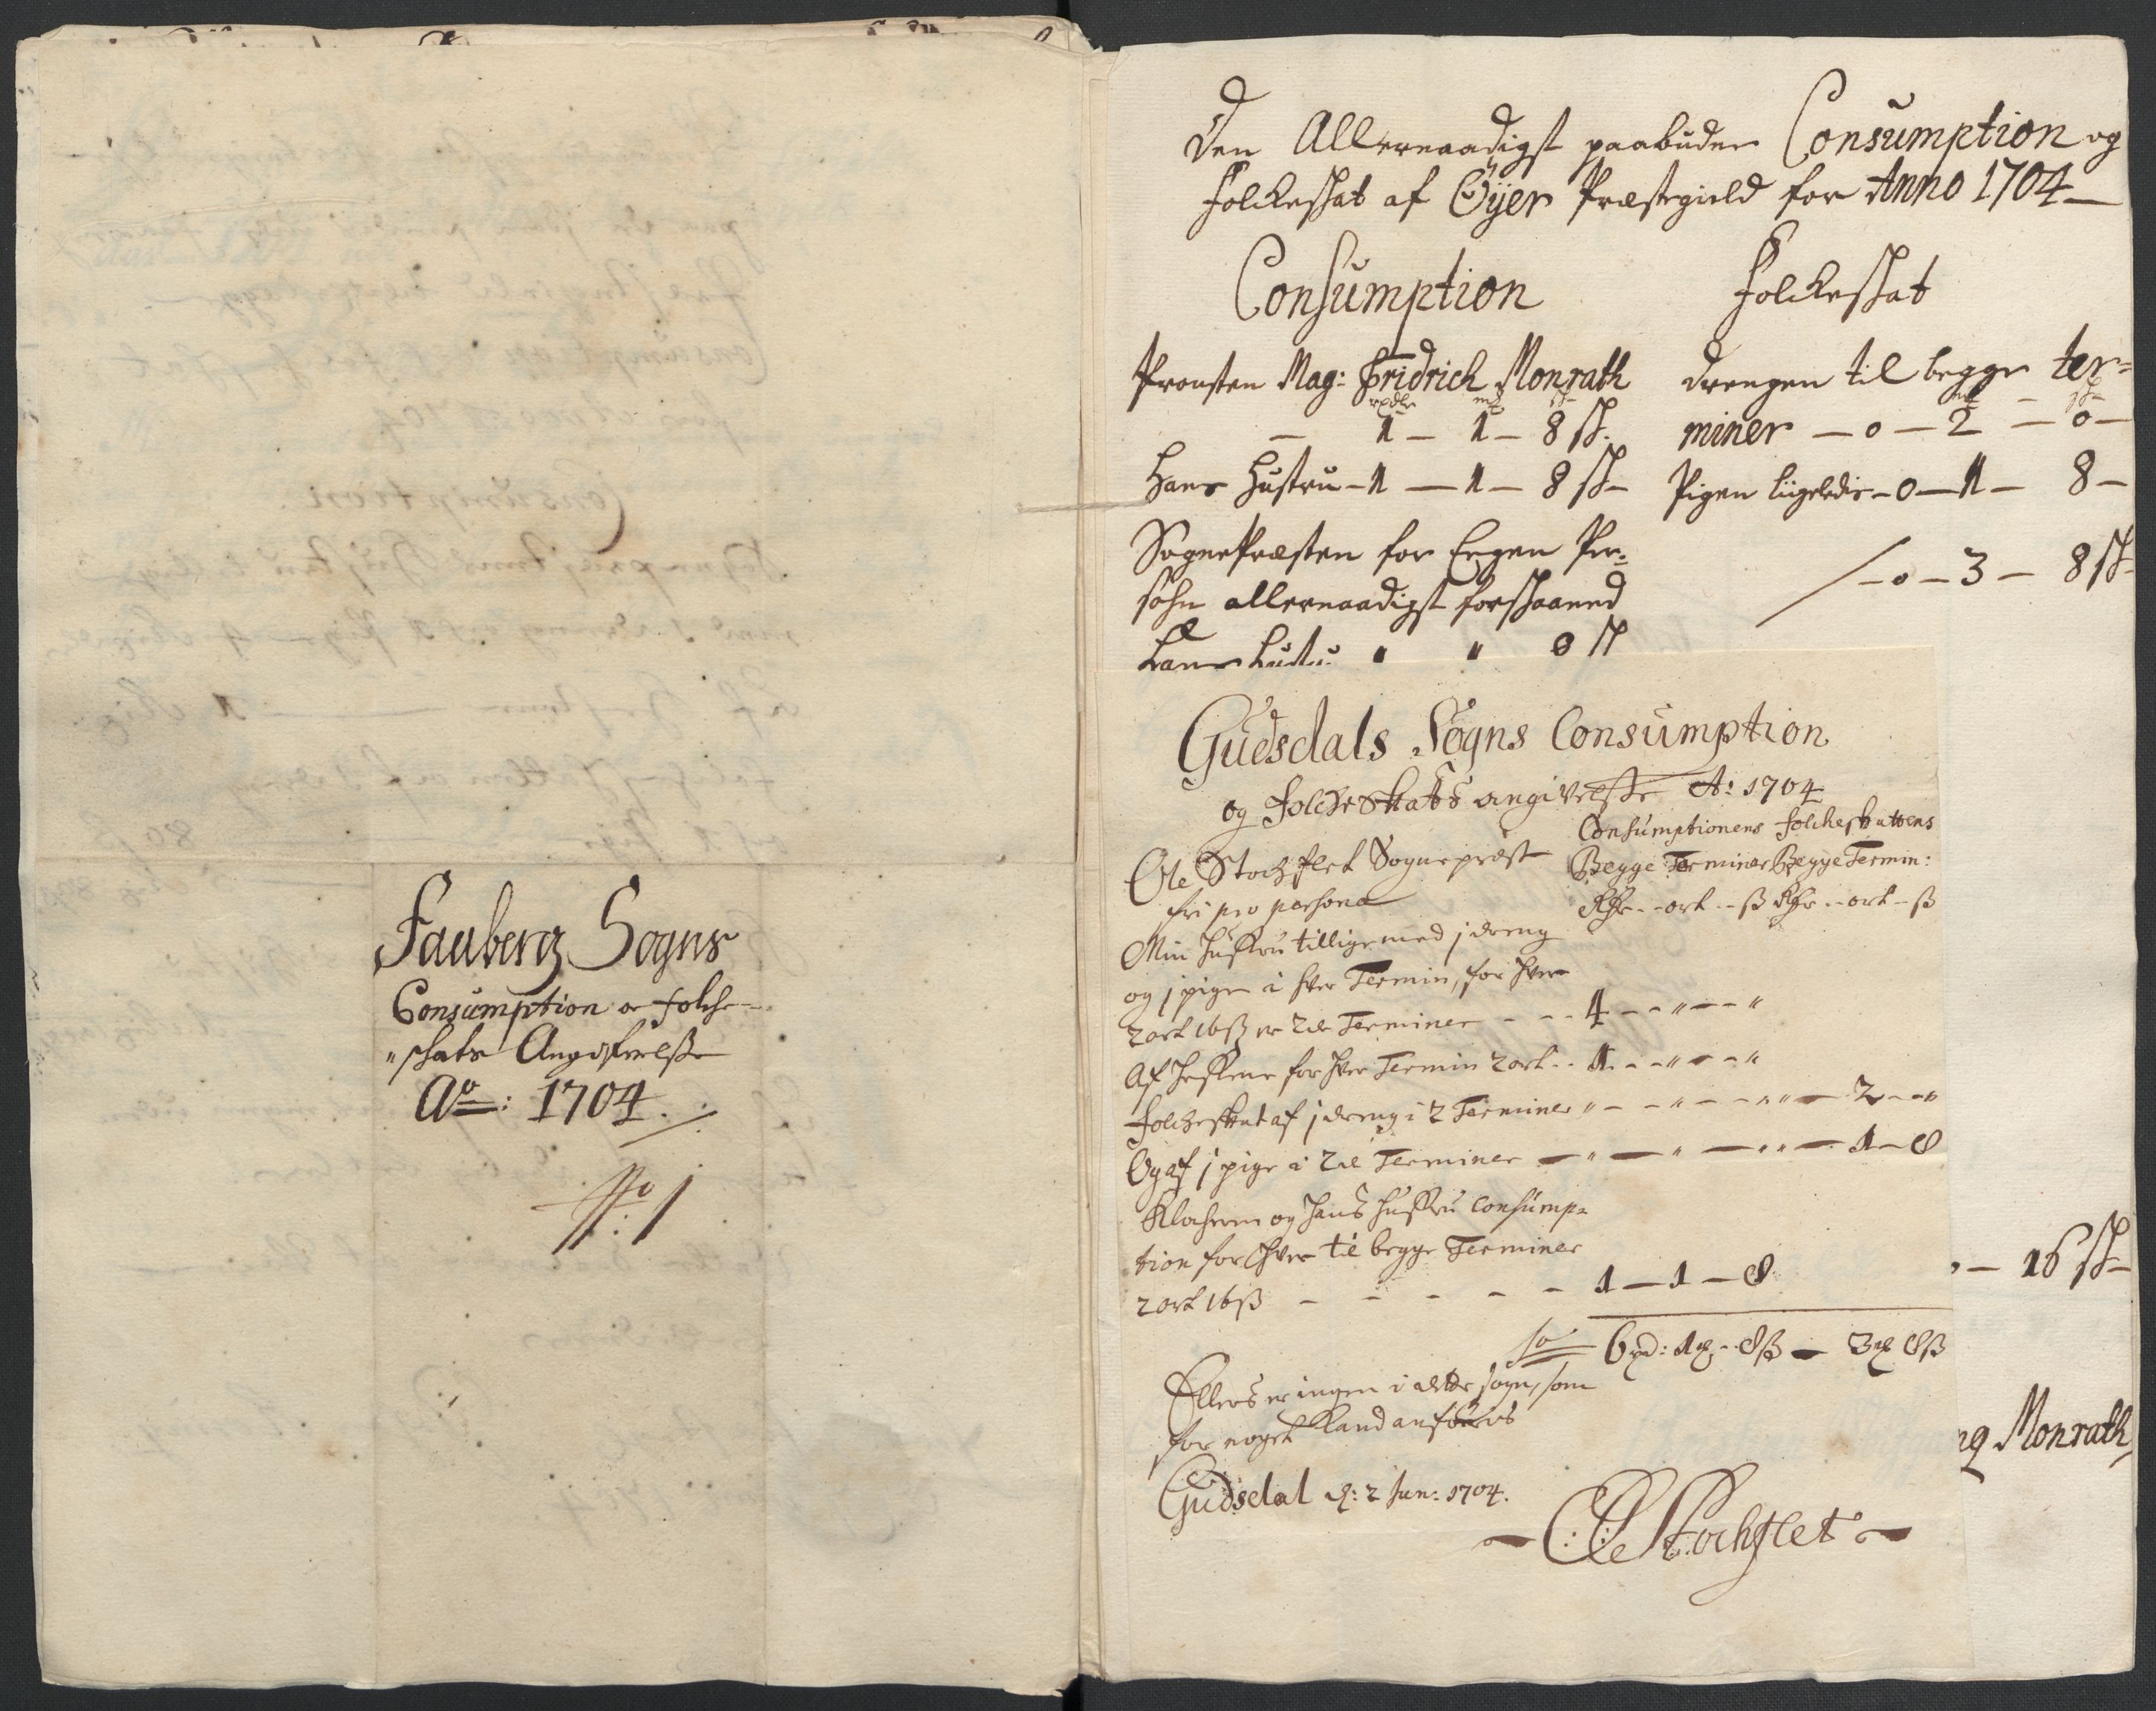 Fauberg Sogns
Consumption oc folche-
"schats Angifvelsse
Ao: 1704.
No: 1
Den Allernaadigst paabudne Consumption og
Folckeskat af Öÿer Præstegield for Anno 1704
Consumption Folckeskat
Prousten Mag: Fridrich Monrath
rixdlr mk sk
- 1 - 1 - 8 sk.
Hans Hustru - 1 - 1 - 8 sk -
SognePræsten for Eegen Per-
sohn allernaadigst forskaaned
hans hustru " " 8 sk
Drengen til begge ter-
miner - 0 - 2 - 0 -
Pigen liigeledis - 0 - 1 - 8 -
- 0 - 3 - 8 sk
Gudsdals Sogns Consumption
og Folcheskats angivelsse Ao 1704
Consumptionens folcheskattens
Begge Terminer Begge Termin:
Rdr - - ort - - ß Rdr - - ort - ß
Ole Stochflet Sognepræst
fri pro persona
Min hustru tilligemed j dreng
og j pige i hver Termin, for hver
2 ort 16ß er 2de Terminer - - - 4 - - " - - "
Af hestene for hver Termin 2 ort - - 1 - - " - - "
Folcheskat af j dreng i 2 Terminer " - - " - - " " - 2 - - "
Og af j pige i 2de Terminer - " - " - " " - 1 - 8
Klocheren og hans hustru Consump-
tion for hver til begge Terminer
2 ort 16ß - - - - - 1 - 1 - 8
Sa 6 rd: 1 mk - 8ß - 3 mk 8ß
Ellers er ingen i dette sogn, som
for noget kand anføres
Gudsdal d: 2 Jun: 1704.
- OStochflet -
- 16 sk -
Monrath